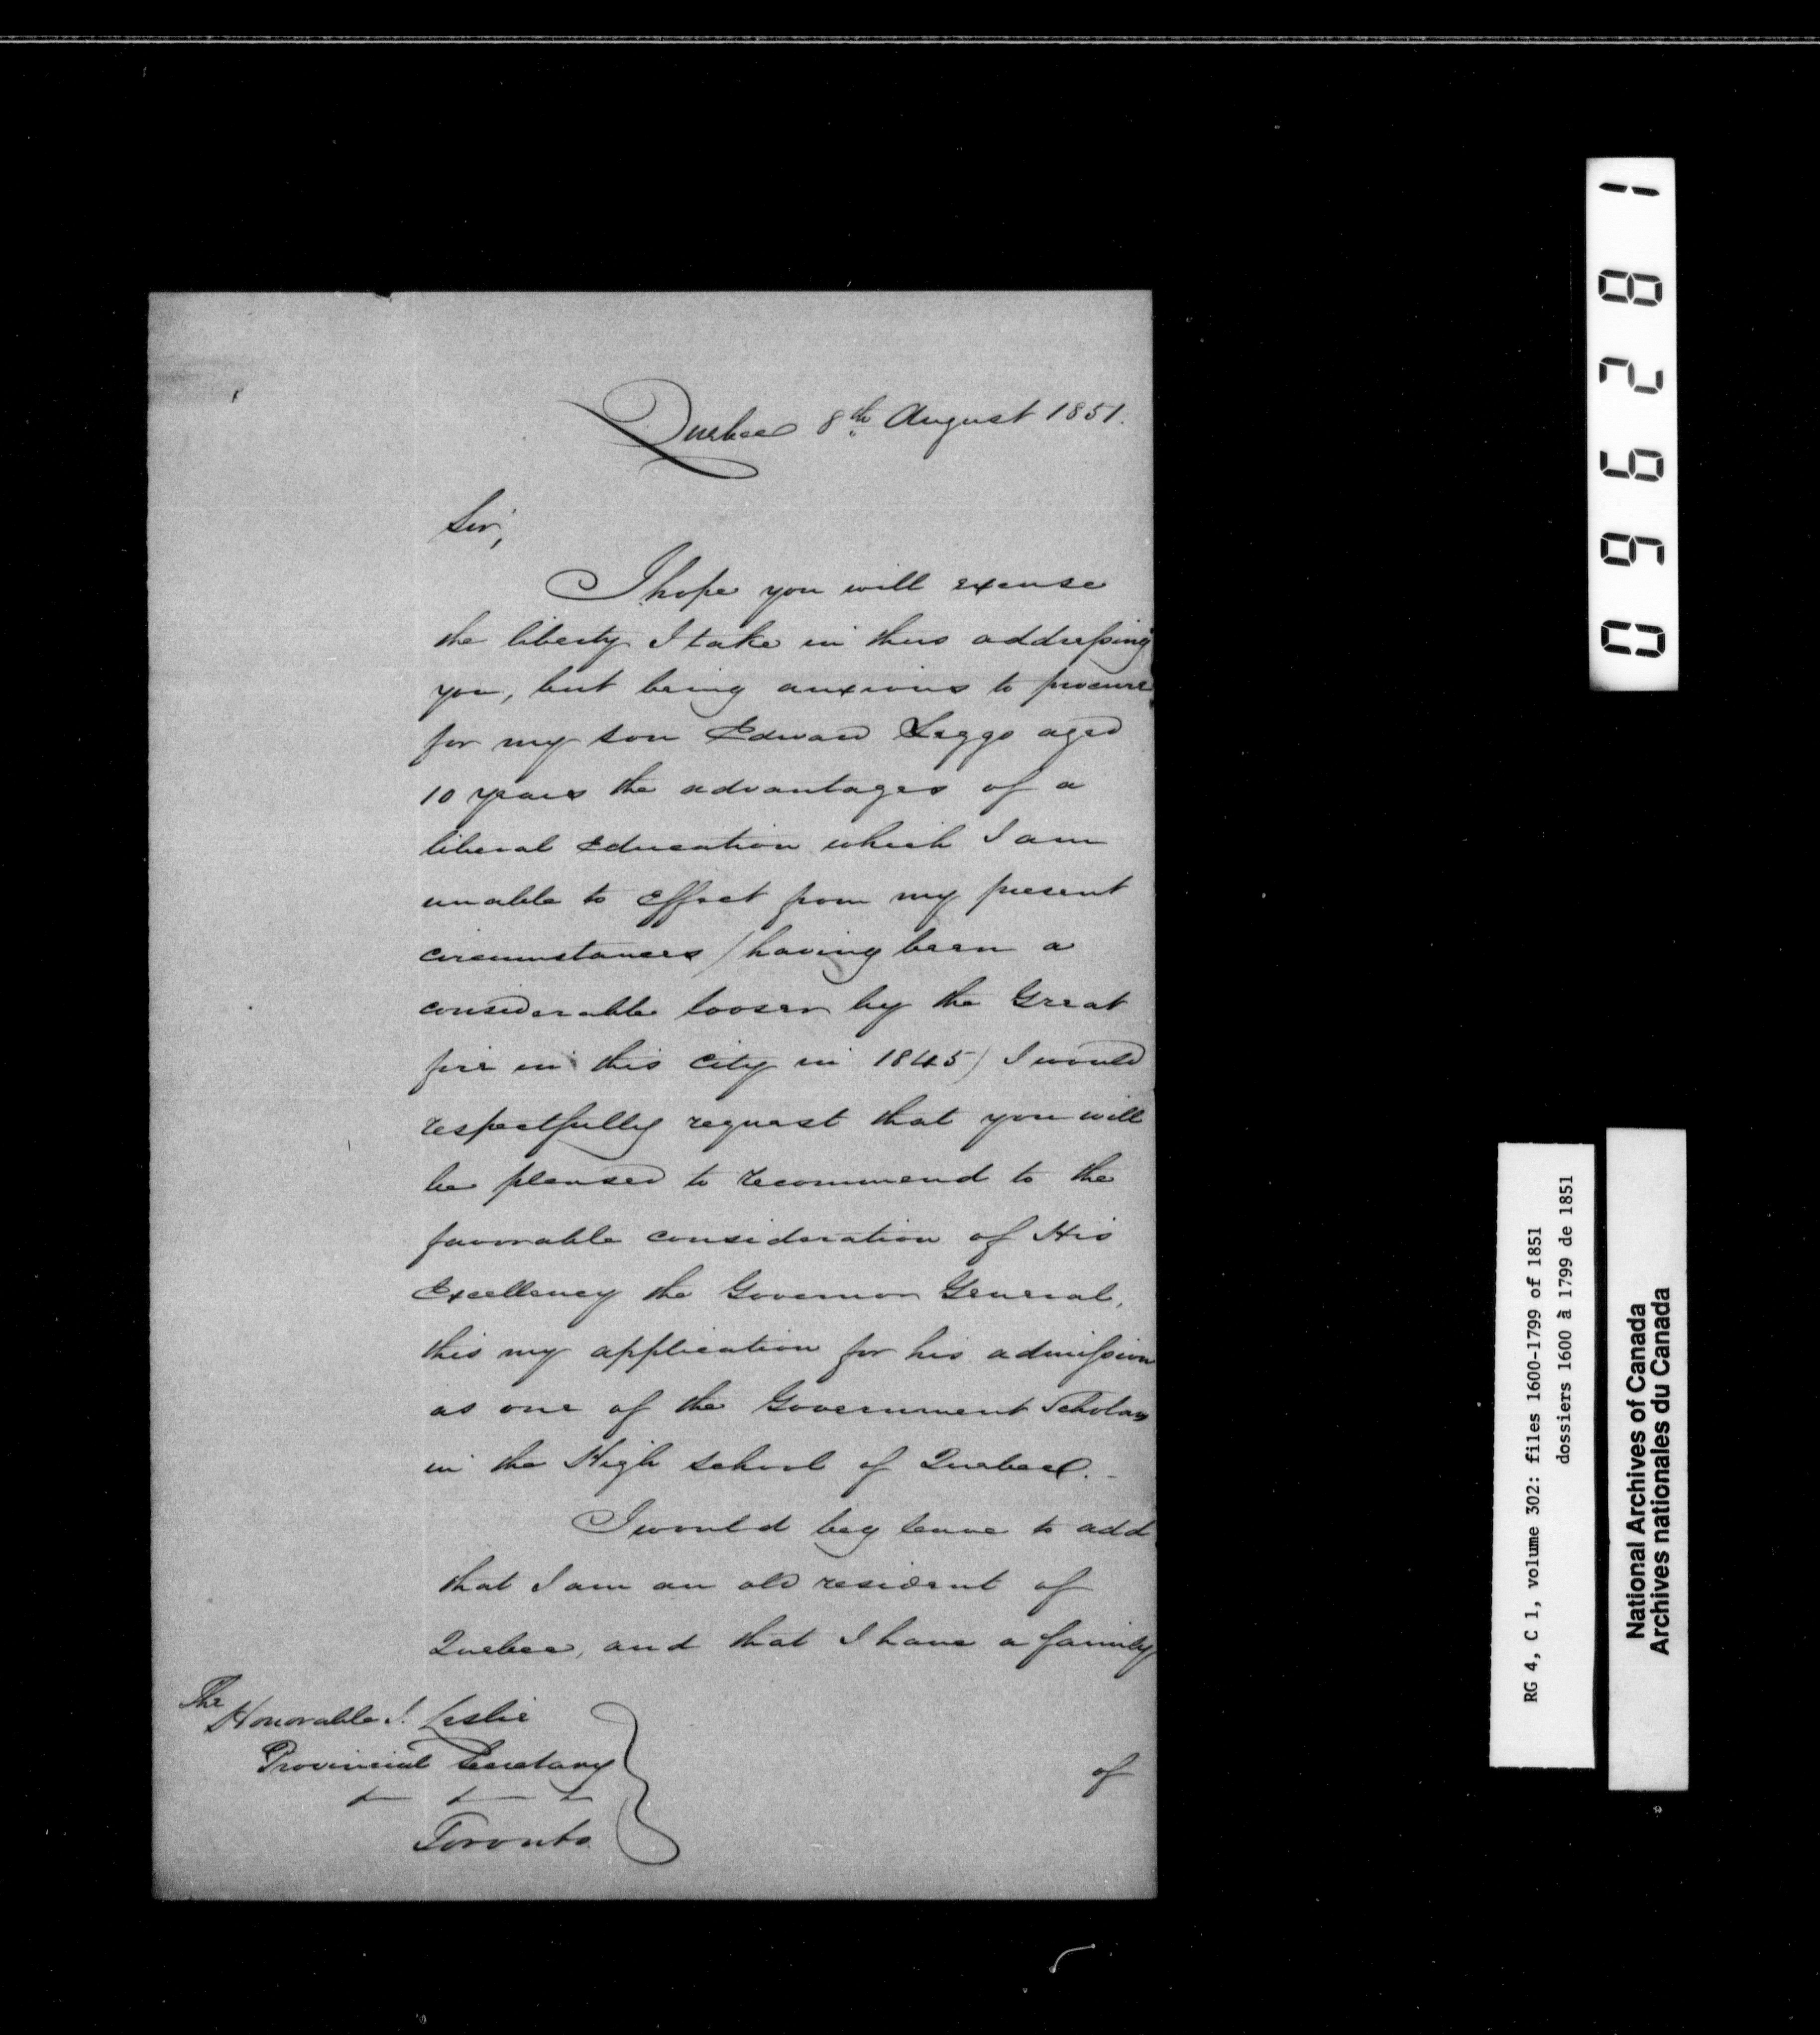 Quebec 8th August 1851.
Sir,
I hope you will excuse
the liberty I take in thus addressing
you, but being anxious to procure
for my son Edward Leggo aged
10 years the advantages of a
liberal Education which I am
unable to effect from my present
circumstances (having been a
considerable looser by the Great
fire in this City in 1845) I would
respectfully request that you will
be pleased to recommend to the
favorable consideration of His
Excellency the Governor General,
this my application for his admission
as one of the Government Scholars
in the High School of Quebec.-
I would beg leave to add
that I am an old resident of
Quebec, and that I have a family
The
Honorable J. Leslie
Provincial Secretary
Toronto
of
096281
RG 4, C 1, volume 302: files 1600-1799 of 1851
dossiers 1600 à 1799 de 1851
National Archives of Canada
Archives nationales du Canada